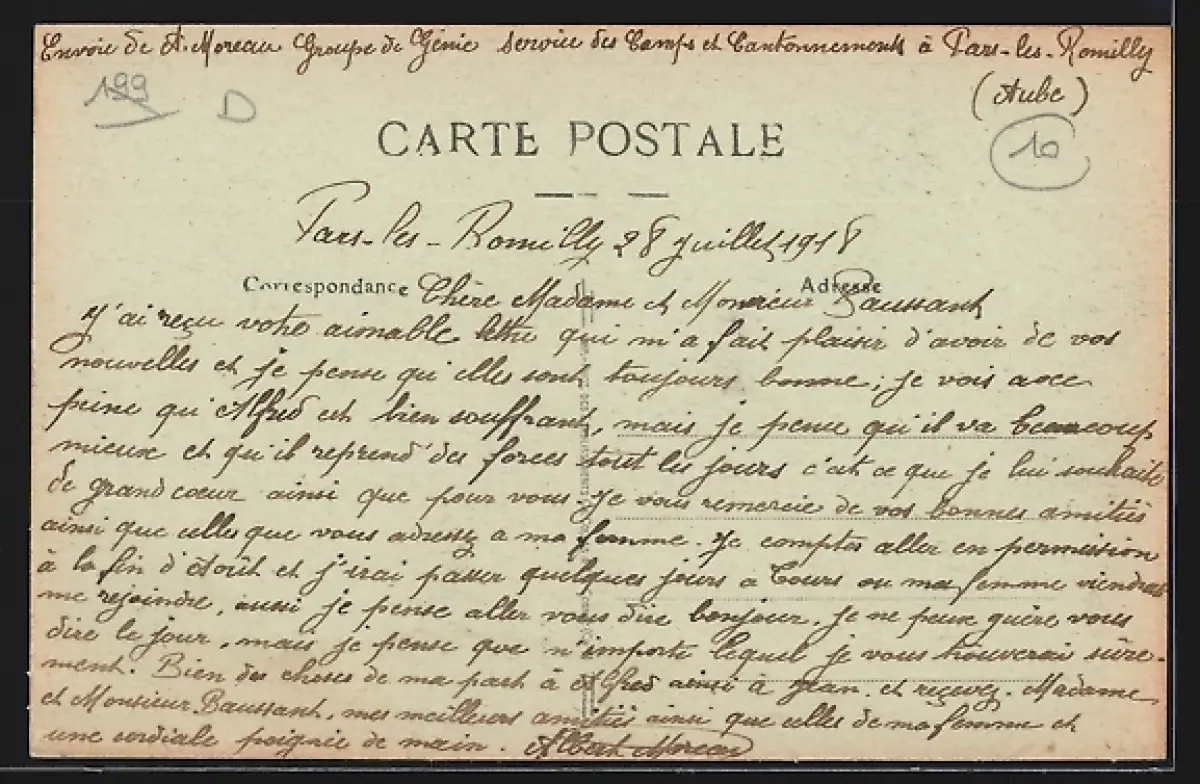 Envoie de A. Moreau Groupe de Génie Service des Camps et Cantonnements à Pars-les-Romilly
(Aube)
199 D
10
CARTE POSTALE
Pars-les-Romilly 28 juillet 1918
Correspondance Adresse
Chère Madame et Monsieur Baussant
J'ai reçu votre aimable lettre qui m'a fait plaisir d'avoir de vos
nouvelles et je pense qu'elles sont toujours bonne; je vois avec
peine qu'Alfred est bien souffrant, mais je pense qu'il va beaucoup
mieux et qu'il reprend des forces tout les jours c'est ce que je lui souhaite
de grand cœur ainsi que pour vous. Je vous remercie de vos bonnes amitiés
ainsi que celles que vous adressez a ma femme. Je comptes aller en permission
à la fin d'Août et j'irai passer quelques jours a Tours ou ma femme viendras
me rejoindre, aussi je pense aller vous dire bonjour. Je ne peux guère vous
dire le jour, mais je pense que n'importe lequel je vous trouverai sûre-
ment. Bien des choses de ma part à Alfred ainsi à Jean. et reçevez. Madame
et Monsieur Baussant, mes meilleurs amitiés ainsi que celles de ma femme et
une cordiale poignée de main. Albert Moreau